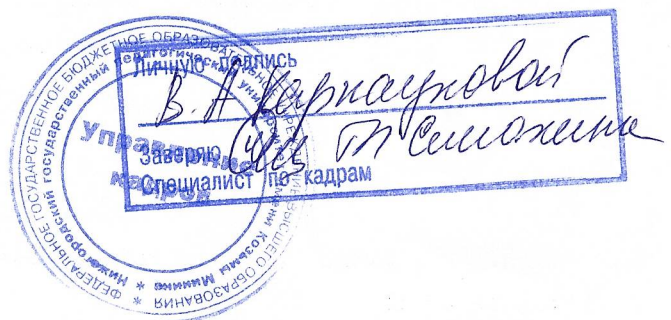 ФЕДЕРАЛЬНОЕ ГОСУДАРСТВЕННОЕ БЮДЖЕТНОЕ ОБРАЗОВАТЕЛЬНОЕ УЧРЕЖДЕНИЕ ВЫСШЕГО ОБРАЗОВАНИЯ *
Нижегородский государственный педагогический университет имени Козьмы Минина *
Управление
кадров
Личную подпись
В. А. Карнауховой
Заверяю
Специалист по кадрам